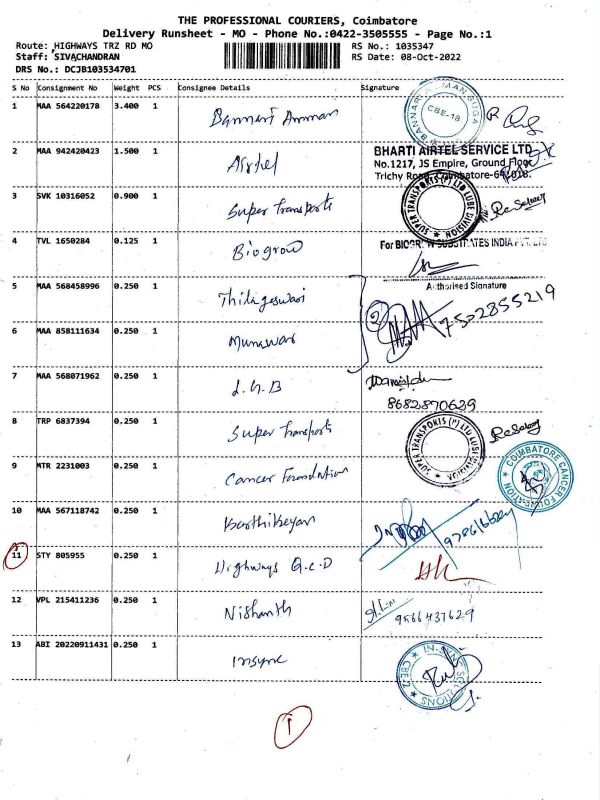 THE PROFESSIONAL COURIERS, Coimbatore
Delivery Runsheet - MO - Phone No.:0422-3505555 - Page No.:1
Route: HIGHWAYS TRZ RD MO RS No.: 1035347
Staff: SIVACHANDRAN RS Date: 08-Oct-2022
DRS No.: DCJB103534701
S No Consignment No Weight PCS Consignee Details Signature
1 MAA 564220178 3.400 1 Bannari Amman
CBE-18
2 MAA 942420423 1.500 1 Airtel
BHARTI AIRTEL SERVICE LTD
No.1217, JS Empire, Ground Floor
Trichy Road, Coimbatore-641018.
3 SVK 10316052 0.900 1 Super Transports
SUPER TRANSPORTS (P) LTD LUBE DIVISION
4 TVL 1650284 0.125 1 Biogrow
For BIOGROW SUBSTRATES INDIA PVT. LTD
Authorised Signature
5 MAA 568458996 0.250 1 Thilageswari
2 7502855219
6 MAA 858111634 0.250 1 Munawar
7 MAA 568071962 0.250 1 L.G.B
8682870629
8 TRP 6837394 0.250 1 Super Transports
SUPER TRANSPORTS (P) LTD
9 MTR 2231003 0.250 1 Cancer Foundation
COIMBATORE CANCER FOUNDATION
10 MAA 567118742 0.250 1 Karthikeyan
11 STY 805955 0.250 1 Highways Q.C.D
12 VPL 215411236 0.250 1 Nishanth
9566437629
13 ABI 20220911431 0.250 1 Insync
1